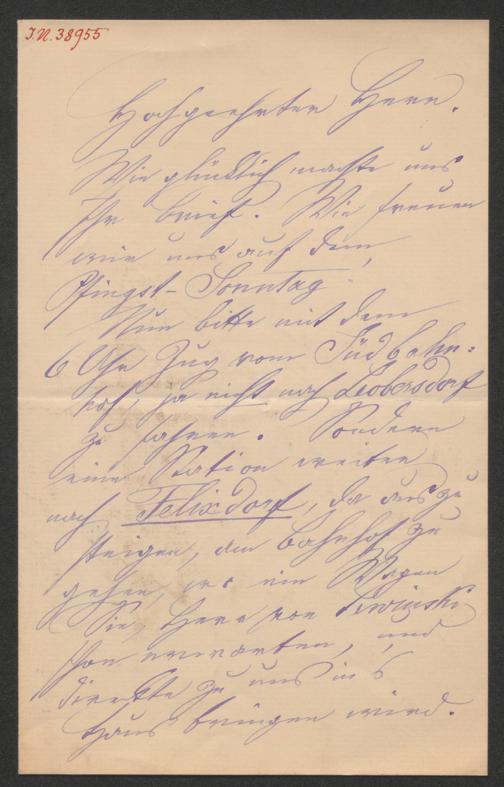 I.N. 38955
Hochgeehrter Herr.
Wie glücklich machte uns
Ihr Brief. Wie freuen
wir uns auf den
Pfingst-Sonntag
Nun bitte mit dem
6 Uhr Zug vom Südbahn-
hof ja nicht nach Leobersdorf
zu fahren. Sondern
eine Station weiter
nach Felixdorf, da aus zu
steigen, den Bahnhof zu
gehen, wo ein Wagen
Sie, Herr von Lewinski
schon erwarten, und
direkte zu uns in's
Haus bringen wird.